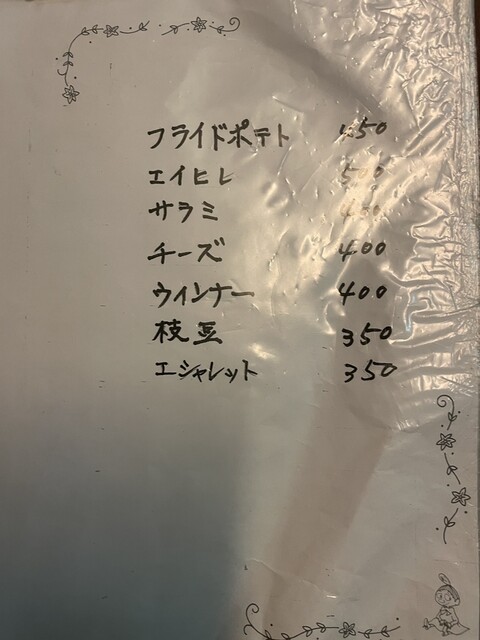 フライドポテト 450
エイヒレ
サラミ 400
チーズ 400
ウィンナー 400
枝豆 350
エシャレット 350